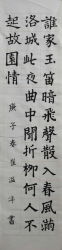 誰家玉笛暗飛聲散入春風滿
洛城此夜曲中聞折柳何人不
起故園情
庚子春崔溫洋書